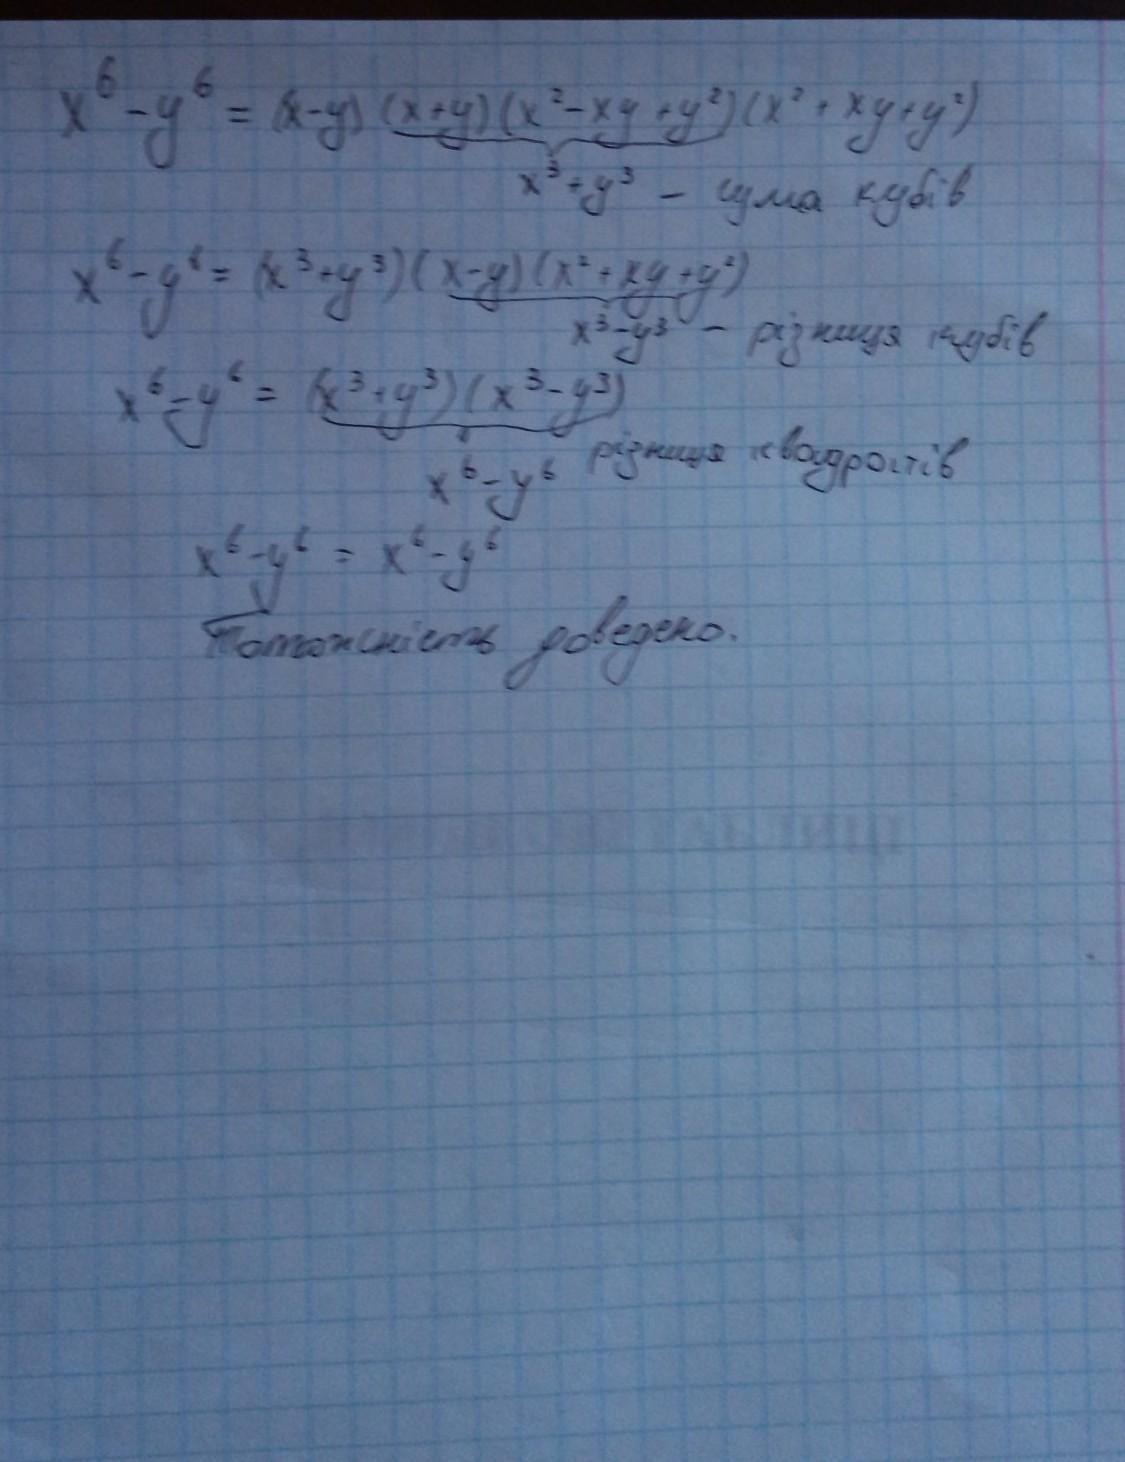 x⁶ - y⁶ = (x-y)(x+y)(x² - xy + y²)(x² + xy + y²)
x³ + y³ - сума кубів
x⁶ - y⁶ = (x³ + y³)(x-y)(x² + xy + y²)
x³ - y³ - різниця кубів
x⁶ - y⁶ = (x³ + y³)(x³ - y³)
x⁶ - y⁶ різниця квадратів
x⁶ - y⁶ = x⁶ - y⁶
Тотожність доведено.